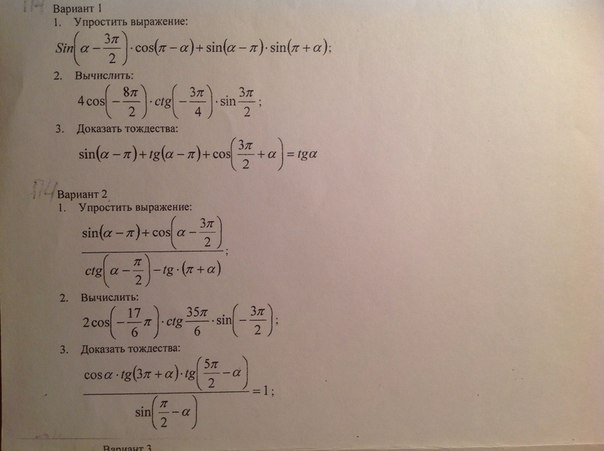 Вариант 1
1. Упростить выражение:
Sin(α − 3π/2)·cos(π − α) + sin(α − π)·sin(π + α);
2. Вычислить:
4cos(−8π/2)·ctg(−3π/4)·sin 3π/2;
3. Доказать тождества:
sin(α − π) + tg(α − π) + cos(3π/2 + α) = tgα
Вариант 2
1. Упростить выражение:
(sin(α − π) + cos(α − 3π/2))/(ctg(α − π/2) − tg·(π + α));
2. Вычислить:
2cos(−17/6 π)·ctg 35π/6·sin(−3π/2);
3. Доказать тождества:
(cosα·tg(3π + α)·tg(5π/2 − α))/(sin(π/2 − α)) = 1;
Вариант 3